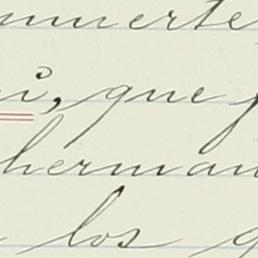 muerte,
i, que
herman
los